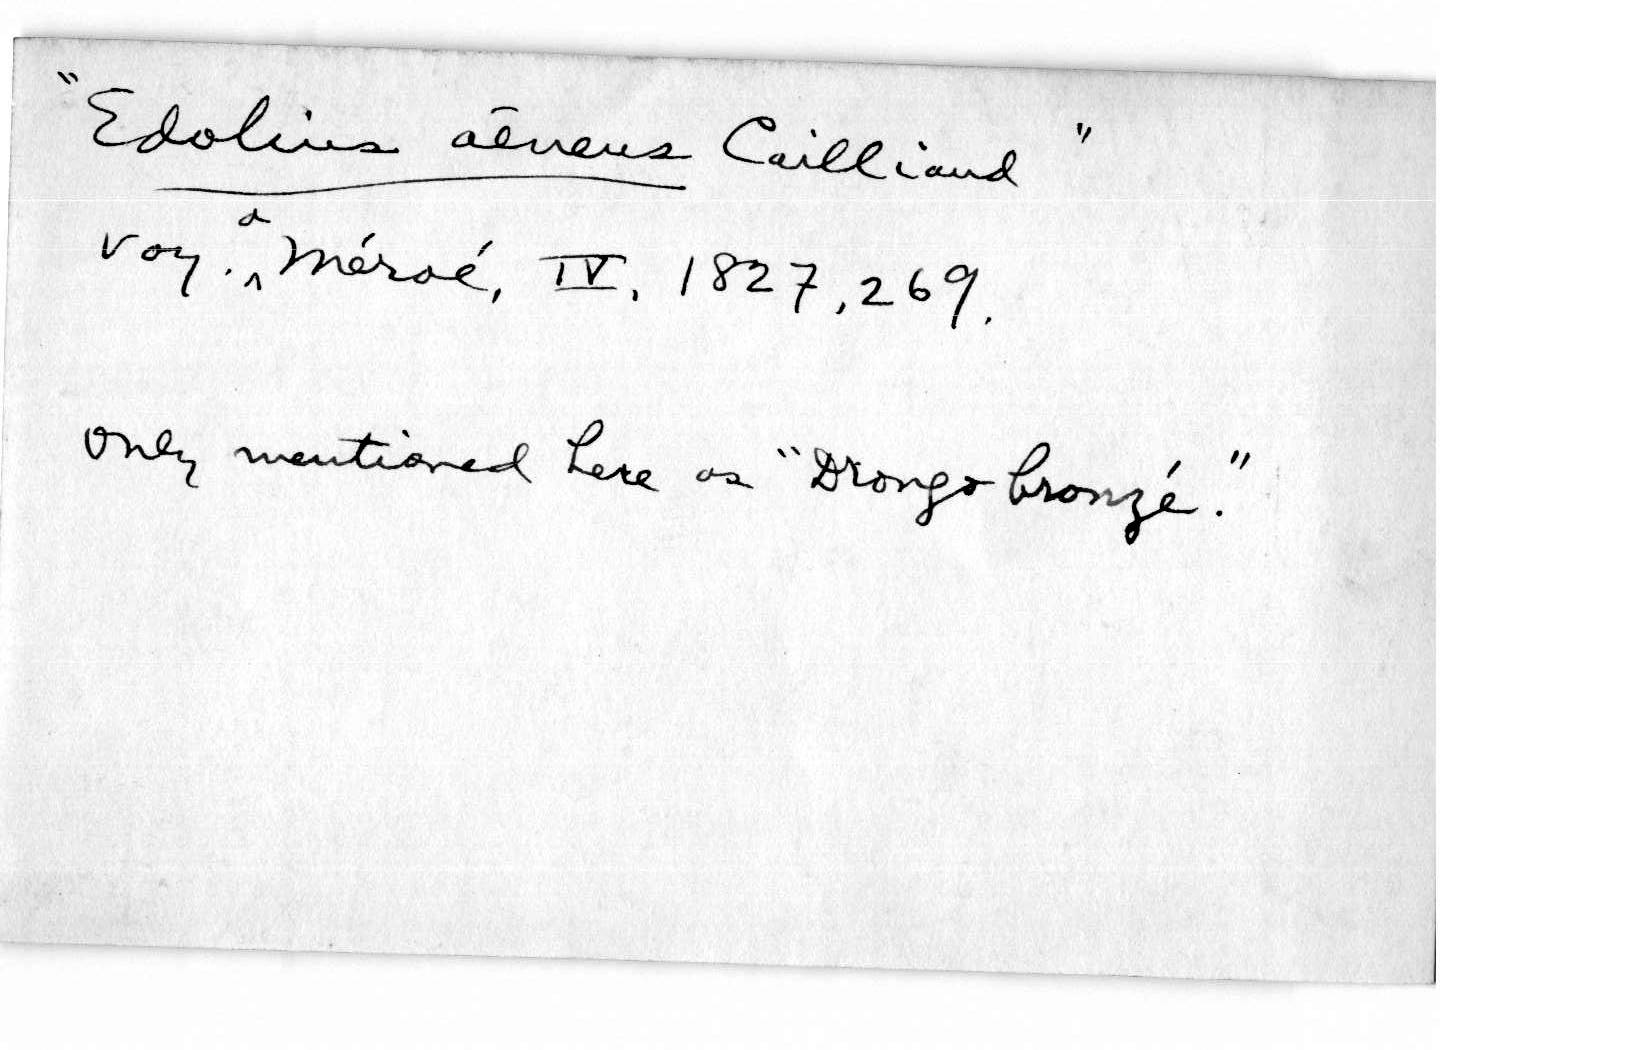 "Edolius aëneus Cailliaud"
Voy. à Méroé, IV, 1827, 269.
Only mentioned here as "Drongo bronzé."